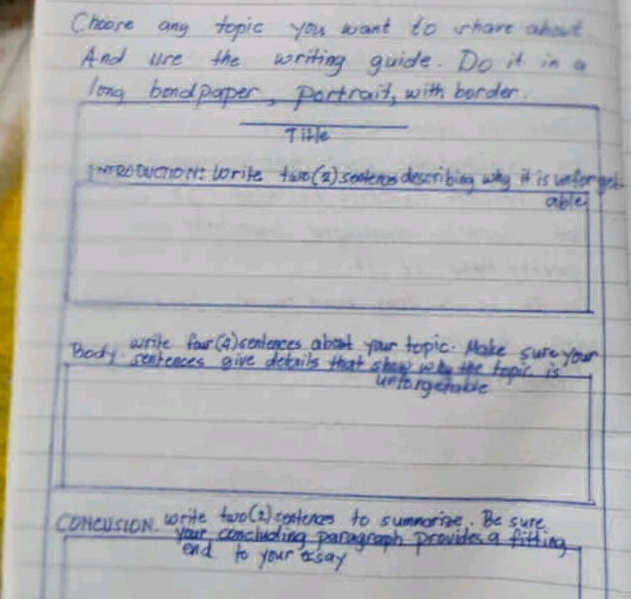 Choose any topic you want to share about.
And use the writing guide. Do it in a
long bondpaper, portrait, with border.
Title
INTRODUCTION: Write two(2) sentences describing why it is unforget-
able
Body. write four(4) sentences about your topic. Make sure your
sentences give details that show why the topic is
unforgetable
CONCUSION. write two(2) sentences to summarize. Be sure
your concluding paragraph provides a fitting
end to your essay